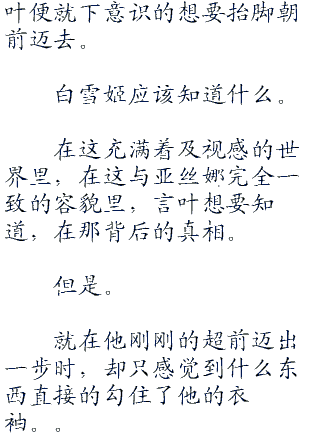 叶便就下意识的想要抬脚朝
前迈去。
白雪姬应该知道什么。
在这充满着及视感的世
界里，在这与亚丝娜完全一
致的容貌里，言叶想要知
道，在那背后的真相。
但是。
就在他刚刚的超前迈出
一步时，却只感觉到什么东
西直接的勾住了他的衣
袖。。